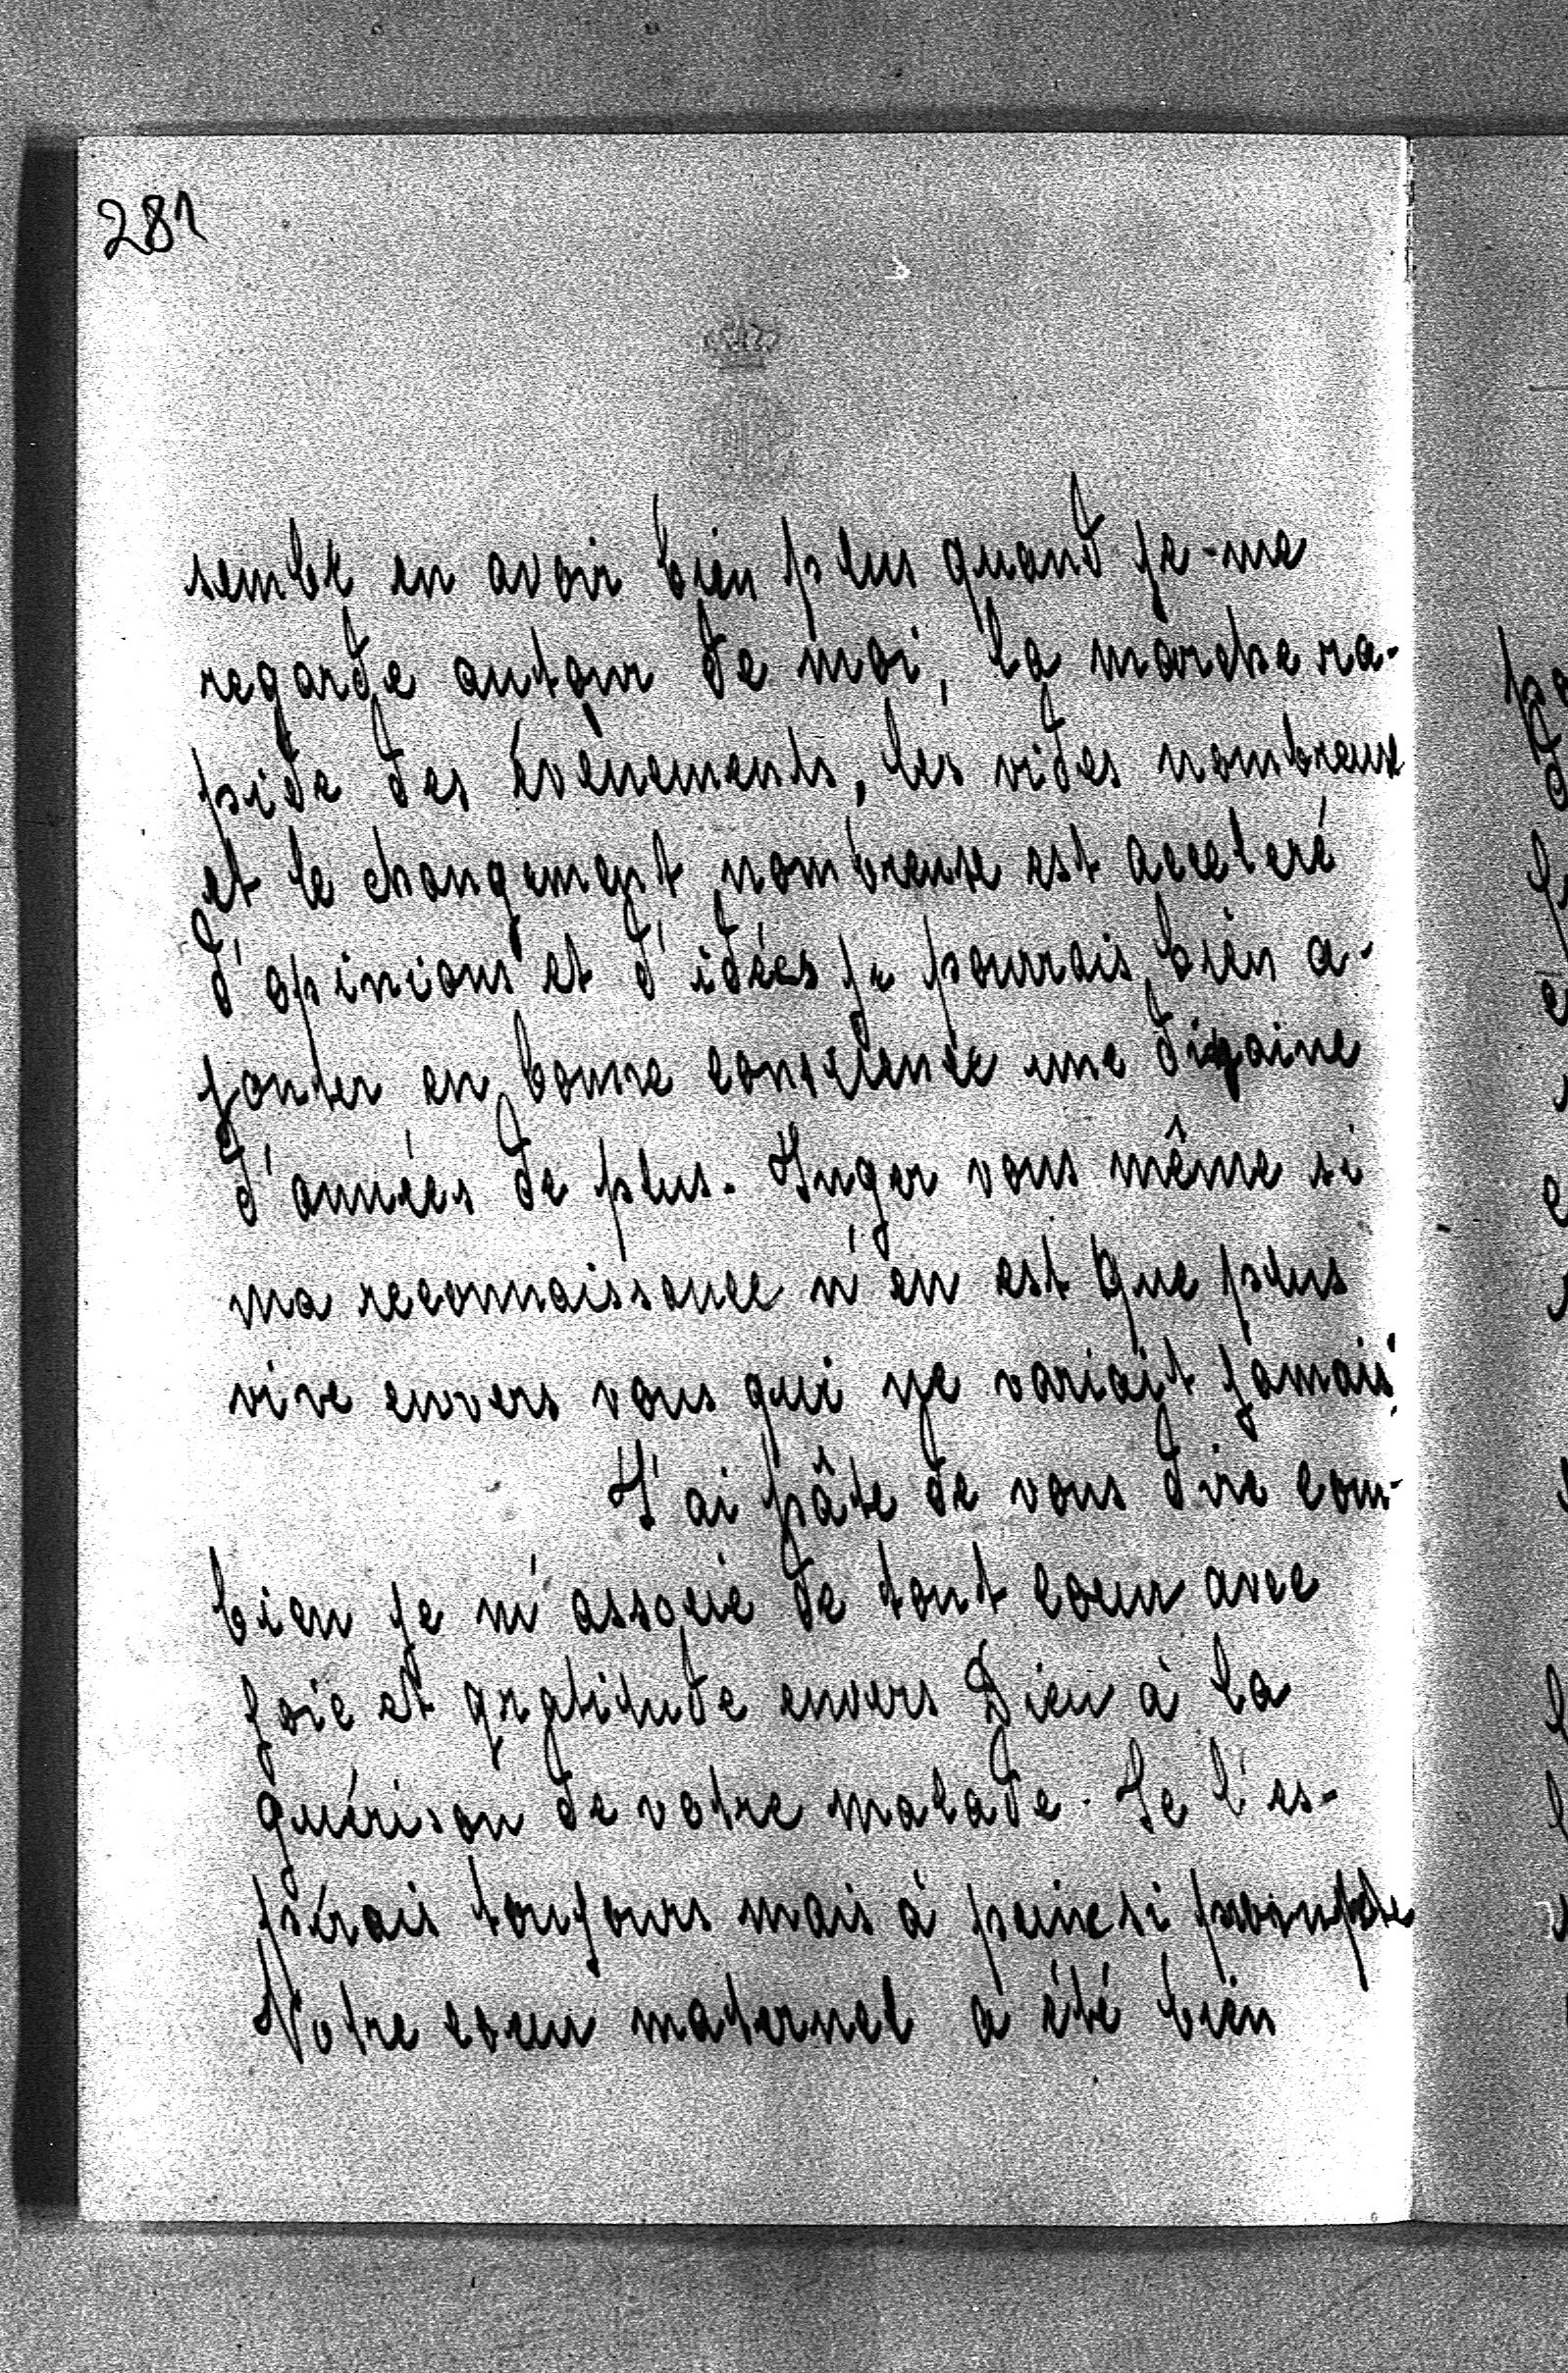 281
semble en avoir bien plus quand je me
regarde autour de moi, la marche ra-
pide des évènements, les vides nombreux
et le changement nombreuse est acceleré
d'opinions et d'idées je pourrais bien a-
jouter en bonne conscience une dizaine
d'années de plus. Juger vous même si
ma reconnaissance n'en est que plus
vive envers vous qui ne variait jamais
J'ai hâte de vous dire com-
bien je m'associe de tout coeur avec
joie et gratitude envers Dieu à la
guérison de votre malade. Je l'es-
pérais toujours mais à peine si prompte
Votre coeur maternel a été bien